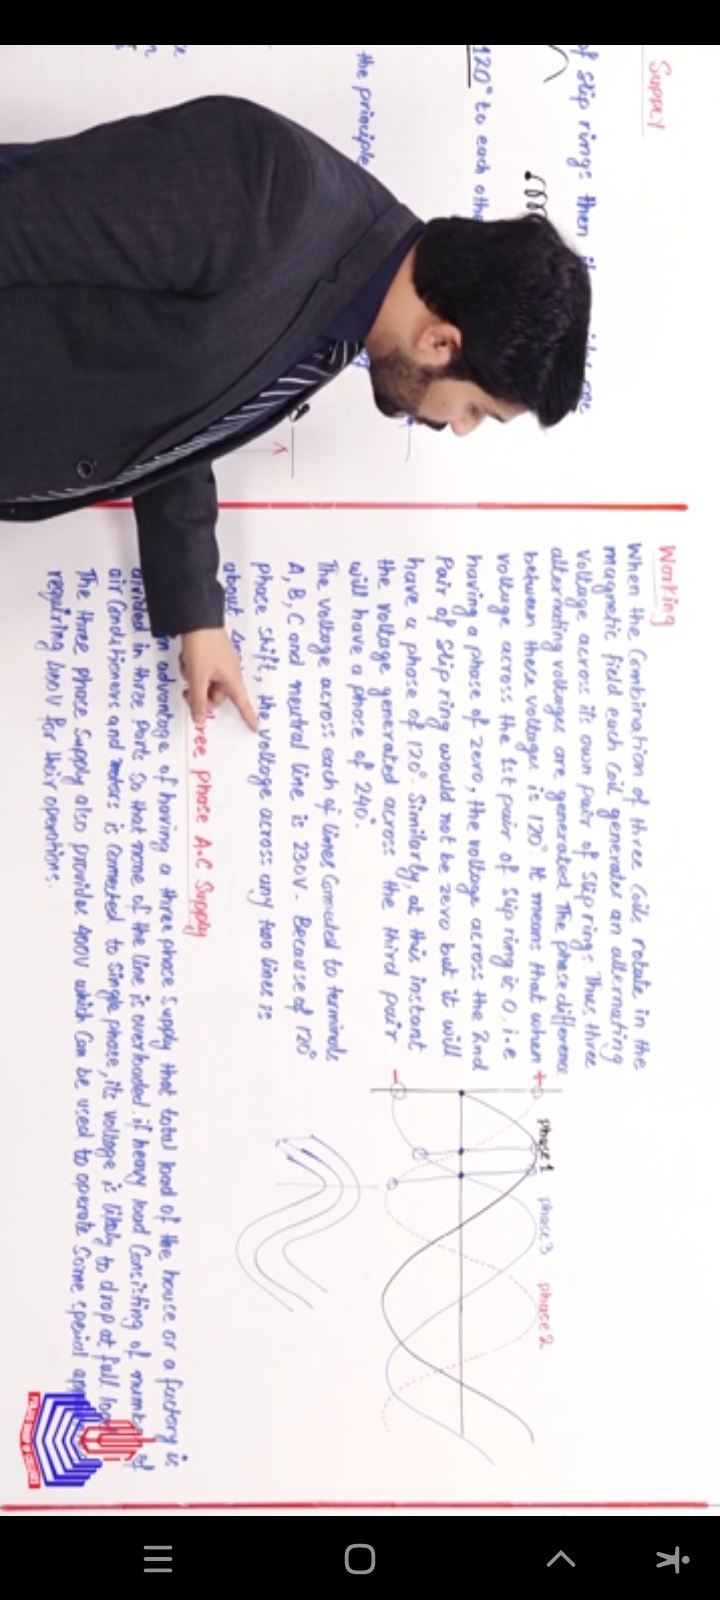 Supply
of slip rings then
120° to each othe
the principle
Working
When the Combination of three Coils rotate in the
magnetic field each Coil generates an alternating
voltage across its own pair of slip rings. Thus, three
alternating voltages are generated. The phase difference
between these voltages is 120°. It means that when
voltage across the 1st pair of slip ring is 0, i.e
having a phase of zero, the voltage across the 2nd
Pair of slip ring would not be zero but it will
have a phase of 120°. Similarly, at this instant
the voltage generated across the third pair
will have a phase of 240°.
The voltage across each of lines Connected to terminals
A, B, C and neutral line is 230V. Because of 120°
phase shift, the voltage across any two lines is
about
+
-
phase 1
phase 3
phase 2
hree phase A.C Supply
advantage of having a three phase supply that total load of the house or a factory is
divided in three parts so that none of the line is overloaded. if heavy load Consisting of number of
air Conditioners and motors is Connected to single phase, its voltage is likely to drop at full load
The three phase Supply also provides 400V which Can be used to operate Some special app
requiring 400V for their operations.